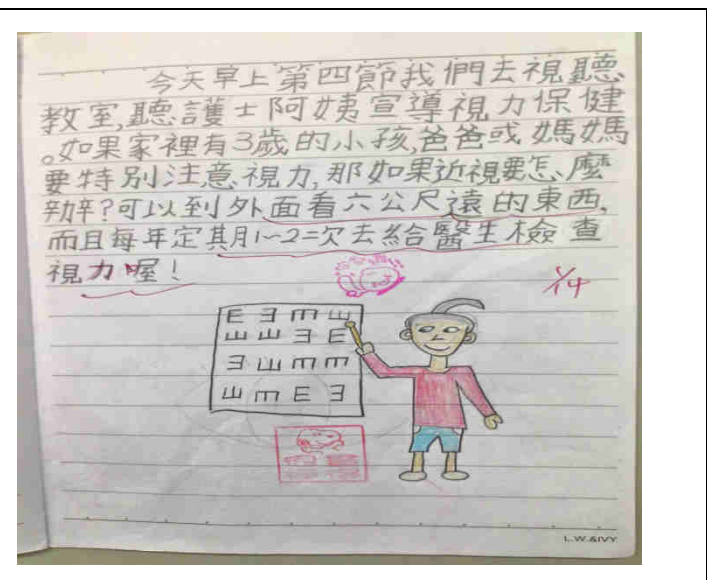 今天早上第四節我們去視聽
教室,聽護士阿姨宣導視力保健
。如果家裡有3歲的小孩,爸爸或媽媽
要特別注意視力,那如果近視要怎麼
辦?可以到外面看六公尺遠的東西,
而且每年定其月1~2=次去給醫生檢查
視力喔!
1/14
E ヨ m 山
山 山 ヨ E
ヨ 山 m m
山 m E ヨ
L.W.&IVY